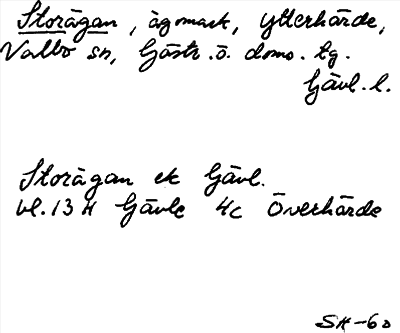 Storågan, ågomark, Ytterhärde,
Valbo sn, Gästr. ö. doms. tg.
Gävl. l.
Storågan ek Gävl.
bl. 13 H Gävle 4c Överhärde
SH-60